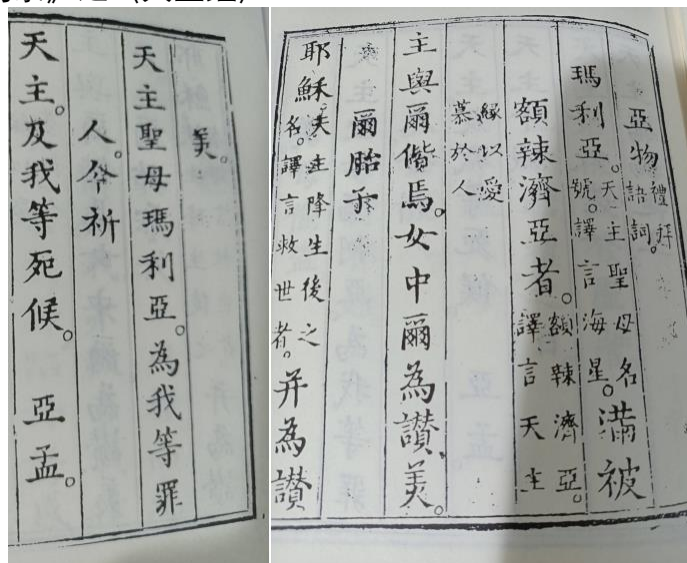 亞物禮拜語詞。
瑪利亞。天主聖母名號。譯言海星。滿被
額辣濟亞者。額辣濟亞。譯言天主
緣以愛慕於人
主與爾偕焉。女中爾為讚美。
爾胎子
耶穌天主降生後之名。譯言救世者。并為讚
美。
天主聖母瑪利亞。為我等罪
人。今祈
天主。及我等死候。 亞孟。